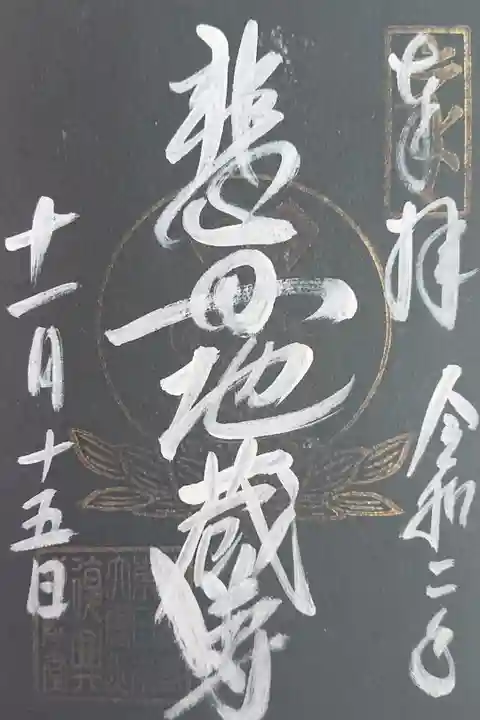 奉拝 令和二年
悲母地蔵尊
十一月十五日
復興